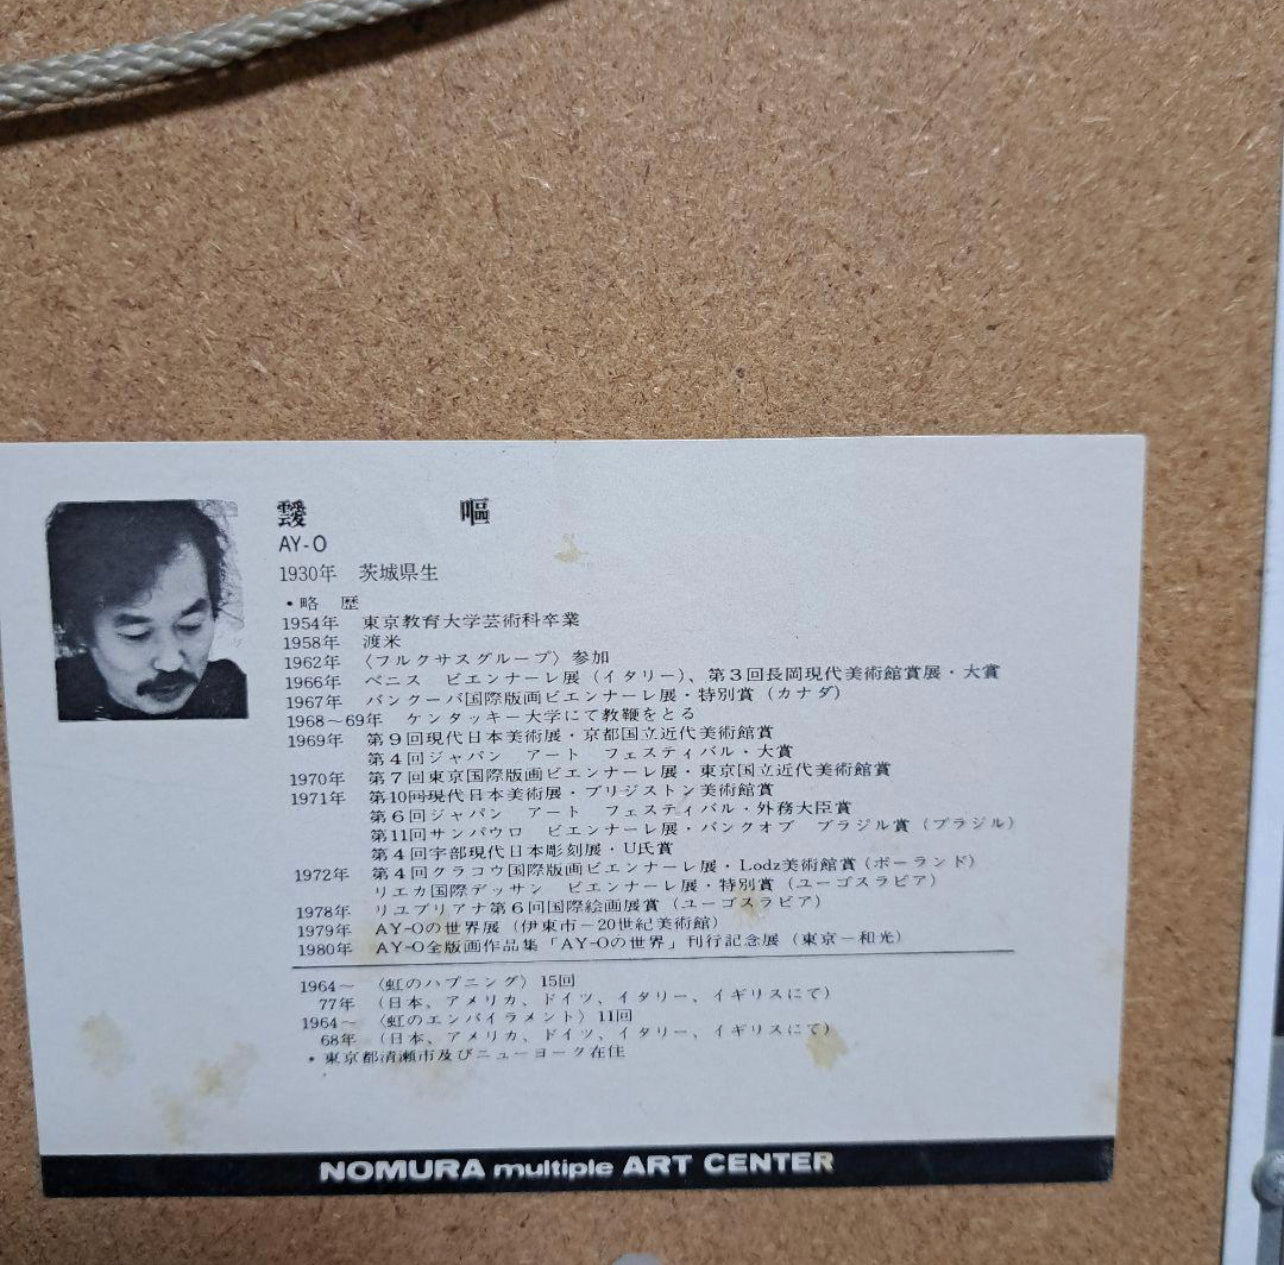 靉嘔
AY-O
1930年　茨城県生
・略　歴
1954年　東京教育大学芸術科卒業
1958年　渡米
1962年　〈フルクサスグループ〉参加
1966年　ベニス　ビエンナーレ展（イタリー）、第3回長岡現代美術館賞展・大賞
1967年　バンクーバ国際版画ビエンナーレ展・特別賞（カナダ）
1968～69年　ケンタッキー大学にて教鞭をとる
1969年　第9回現代日本美術展・京都国立近代美術館賞
第4回ジャパン　アート　フェスティバル・大賞
1970年　第7回東京国際版画ビエンナーレ展・東京国立近代美術館賞
1971年　第10回現代日本美術展・ブリジストン美術館賞
第6回ジャパン　アート　フェスティバル・外務大臣賞
第11回サンパウロ　ビエンナーレ展・バンクオブ　ブラジル賞（ブラジル）
第4回宇部現代日本彫刻展・U氏賞
1972年　第4回クラコウ国際版画ビエンナーレ展・Lodz美術館賞（ポーランド）
リエカ国際デッサン　ビエンナーレ展・特別賞（ユーゴスラビア）
1978年　リユブリアナ第6回国際絵画展賞（ユーゴスラビア）
1979年　AY-Oの世界展（伊東市－20世紀美術館）
1980年　AY-O全版画作品集「AY-Oの世界」刊行記念展（東京－和光）
1964～　〈虹のハプニング〉15回
77年　（日本、アメリカ、ドイツ、イタリー、イギリスにて）
1964～　〈虹のエンバイラメント〉11回
68年　（日本、アメリカ、ドイツ、イタリー、イギリスにて）
・東京都清瀬市及びニューヨーク在住
NOMURA multiple ART CENTER